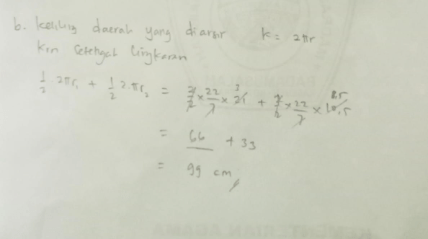 b. keliling daerah yang diarsir k = 2πr
krn setengah lingkaran
1/2 2πr₁ + 1/2 2πr₂ = 2/2 × 22/7 × 21 3 + 2/2 × 22/7 × 10,5
= 66 + 33
= 99 cm